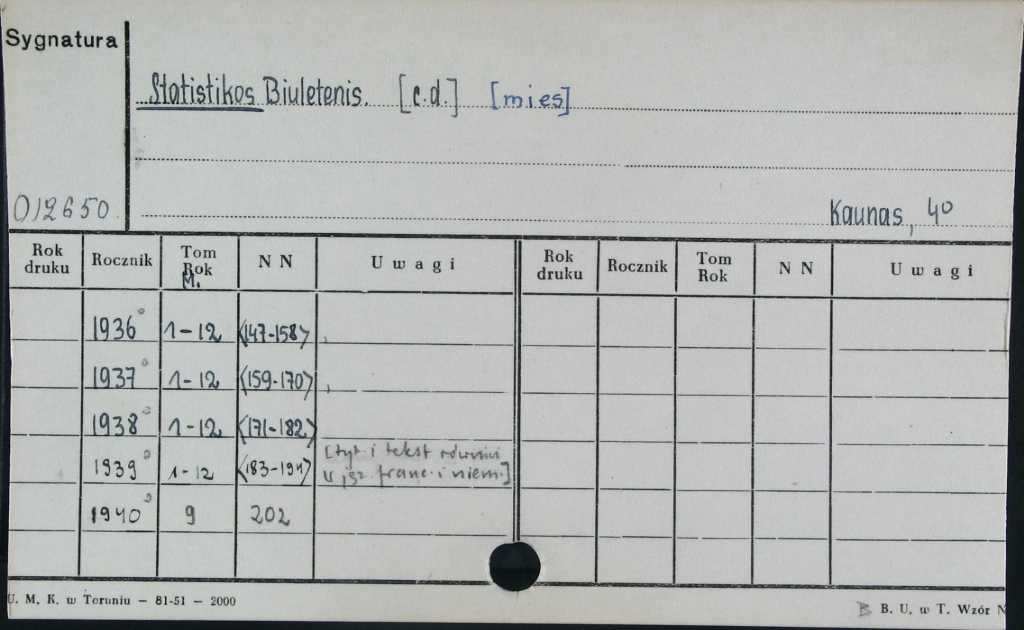 Sygnatura
Statistikos Biuletenis. [c.d.] [mies]
012650
Kaunas, 4⁰
Rok druku Rocznik Tom Rok M. N N Uwagi Rok druku Rocznik Tom Rok N N Uwagi
1936° 1-12 <147-158> ,
1937° 1-12 <159-170> ,
1938° 1-12 <171-182>
[tyt. i tekst również
1939° 1-12 <183-194> w jęz. franc. i niem.]
1940° 9 202
U. M. K. w Toruniu — 81-51 — 2000
B. U. w T. Wzór N